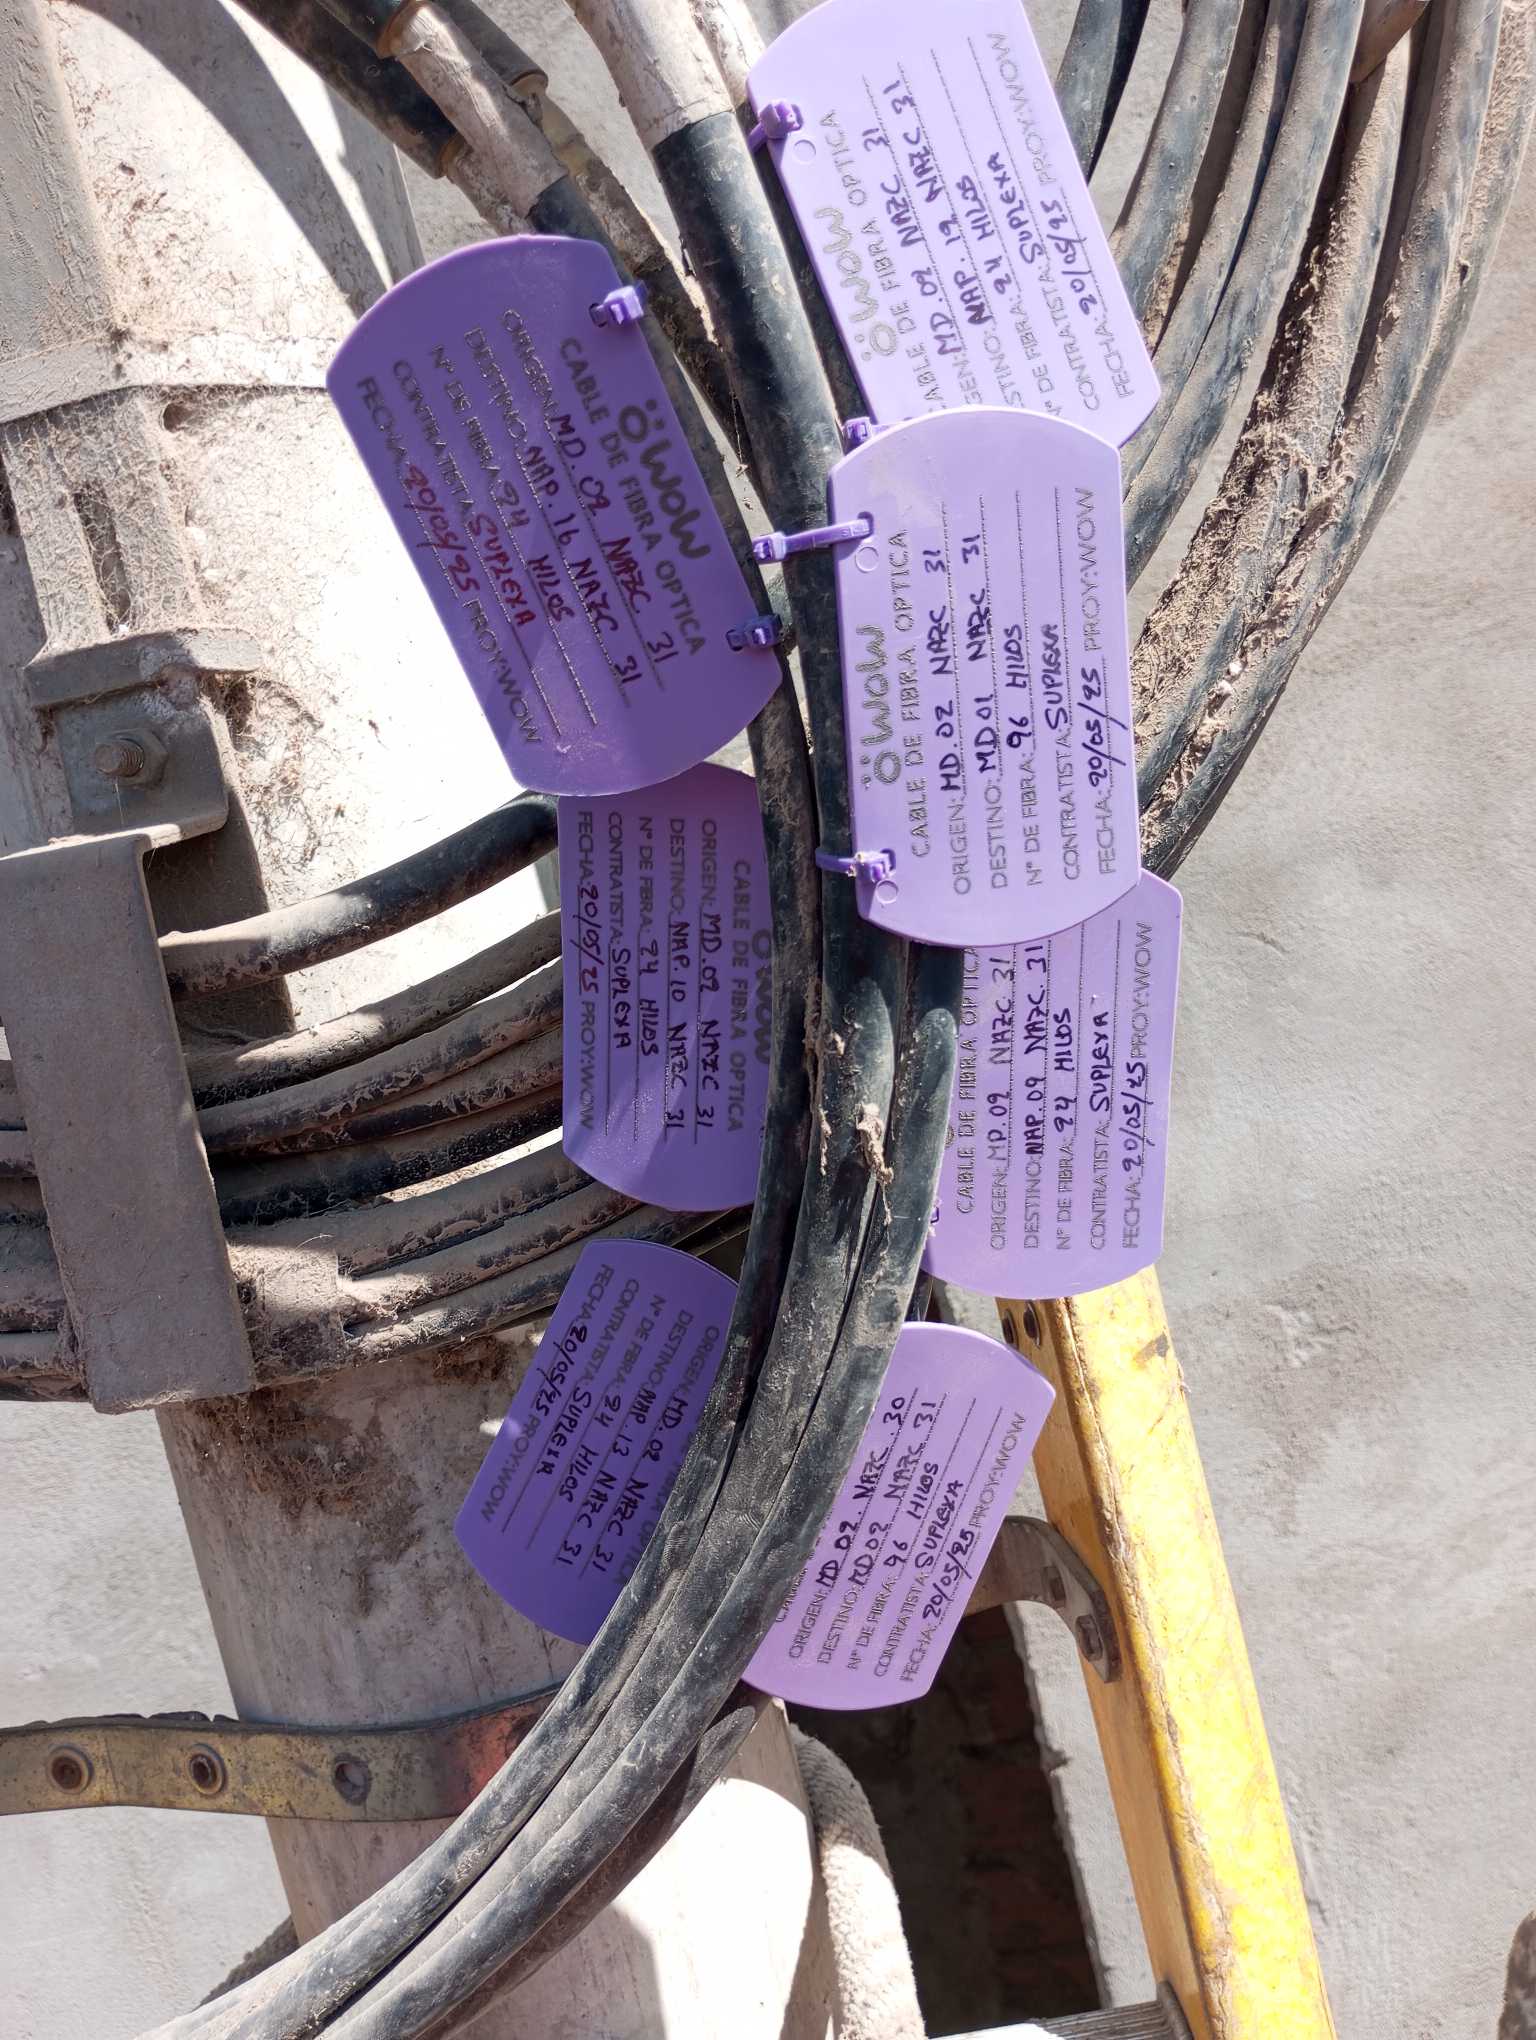 wow
CABLE DE FIBRA OPTICA
MD.02 NAZC 31
NAP.19 NAZC 31
Nº DE FIBRA: 24 HILOS
CONTRATISTA: SUPLEXA
FECHA: 20/05/25 PROY:WOW
wow
CABLE DE FIBRA OPTICA
ORIGEN: MD.02 NAZC 31
DESTINO: NAP.16 NAZC 31
Nº DE FIBRA: 24 HILOS
CONTRATISTA: SUPLEXA
FECHA: 20/05/25 PROY:WOW
wow
CABLE DE FIBRA OPTICA
ORIGEN: MD.02 NAZC 31
DESTINO: MD01 NAZC 31
Nº DE FIBRA: 96 HILOS
CONTRATISTA: SUPLEXA
FECHA: 20/05/25 PROY:WOW
CABLE DE FIBRA OPTICA
ORIGEN: MD.02 NAZC 31
DESTINO: NAP.10 NAZC 31
Nº DE FIBRA: 24 HILOS
CONTRATISTA: SUPLEXA
FECHA: 20/05/25 PROY:WOW
CABLE DE FIBRA OPTICA
ORIGEN: MD.02 NAZC 31
DESTINO: NAP.09 NAZC 31
Nº DE FIBRA: 24 HILOS
CONTRATISTA: SUPLEXA
FECHA: 20/05/25 PROY:WOW
ORIGEN: MD.02 NAZC 31
DESTINO: NAP 13 NAZC 31
Nº DE FIBRA: 24 HILOS
CONTRATISTA: SUPLEXA
FECHA: 20/05/25 PROY:WOW
ORIGEN: MD 02. NAZC .30
DESTINO: MD02 NAZC 31
Nº DE FIBRA: 96 HILOS
CONTRATISTA: SUPLEXA
FECHA: 20/05/25 PROY:WOW